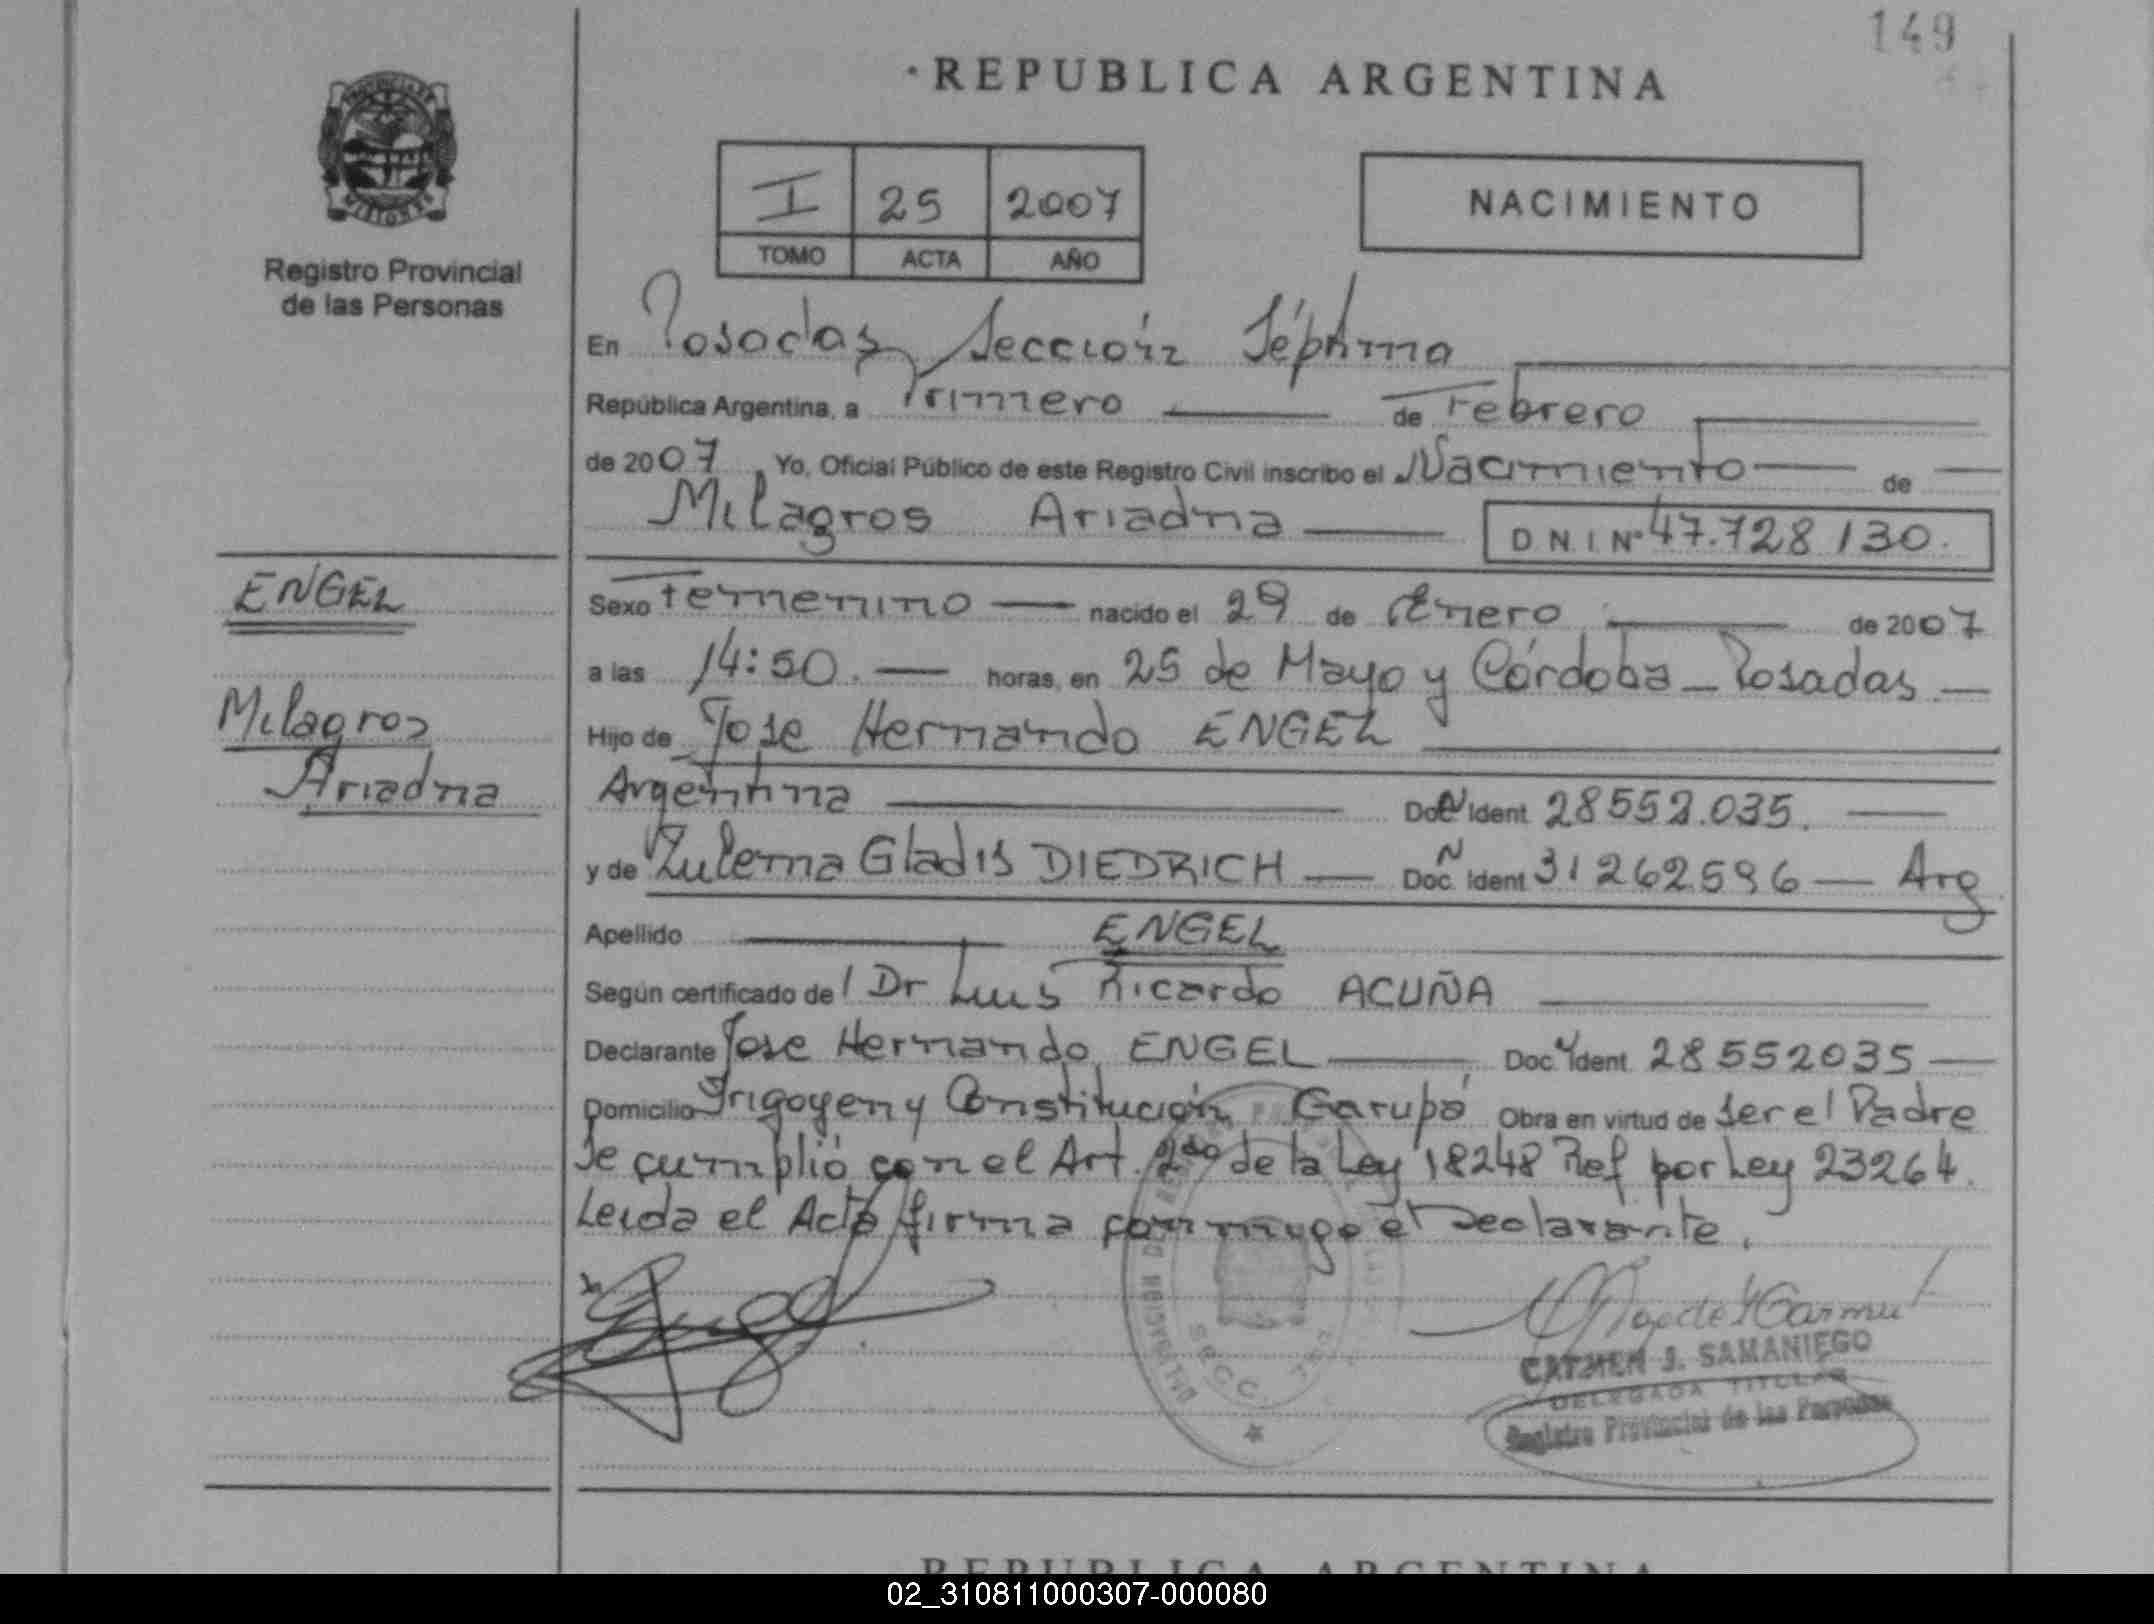 149
REPUBLICA ARGENTINA
PROVINCIA DE MISIONES
Registro Provincial
de las Personas
I 25 2007
TOMO ACTA AÑO
NACIMIENTO
En Posadas, Sección Séptima
República Argentina, a Primero de Febrero
de 2007, Yo, Oficial Público de este Registro Civil inscribo el Nacimiento de
Milagros Ariadna D N I Nº 47.728 130.
ENGEL
Milagros
Ariadna
Sexo Femenino nacido el 29 de Enero de 2007
a las 14:50. horas, en 25 de Mayo y Córdoba - Posadas
Hijo de Jose Hernando ENGEL
Argentina Doc Ident 28552.035.
y de Zulema Gladis DIEDRICH Doc. Ident 31262596 - Arg
Apellido ENGEL
Según certificado de Dr Luis Ricardo ACUÑA
Declarante Jose Hernando ENGEL Doc. Ident. 28552035
Domicilio Yrigoyen y Constitución Garupá Obra en virtud de ser el Padre
Se cumplió con el Art. 2do de la Ley 18248 Ref por Ley 23264.
Leida el Acta firma conmigo el Declarante.
Engel
CARMEN J. SAMANIEGO
DELEGADA TITULAR
Registro Provincial de las Personas
REPUBLICA ARGENTINA
02_310811000307-000080